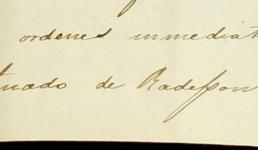 ordenes immediat
tuado de Radesson